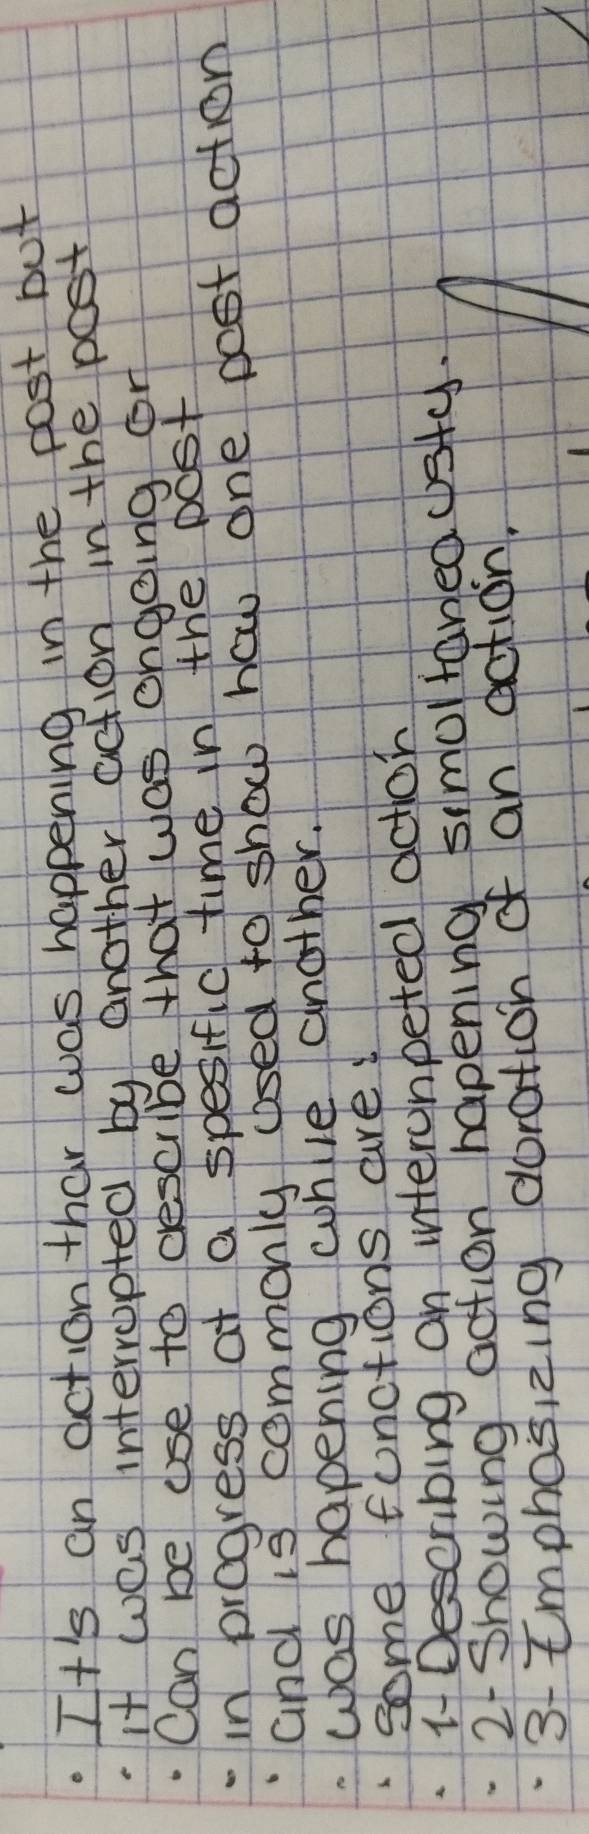 • It's an action thar was happening in the past but
• it was interrupted by another action in the past
• Can be use to describe that was ongoing or
• in progress at a spesific time in the past
• and is commonly used to show how one past action
• was hapening while another.
• Some functions are:
• 1- Describing an interunpeted action
• 2- Showing action hapening simoltaneausty.
• 3- Imphasizing doration of an action.